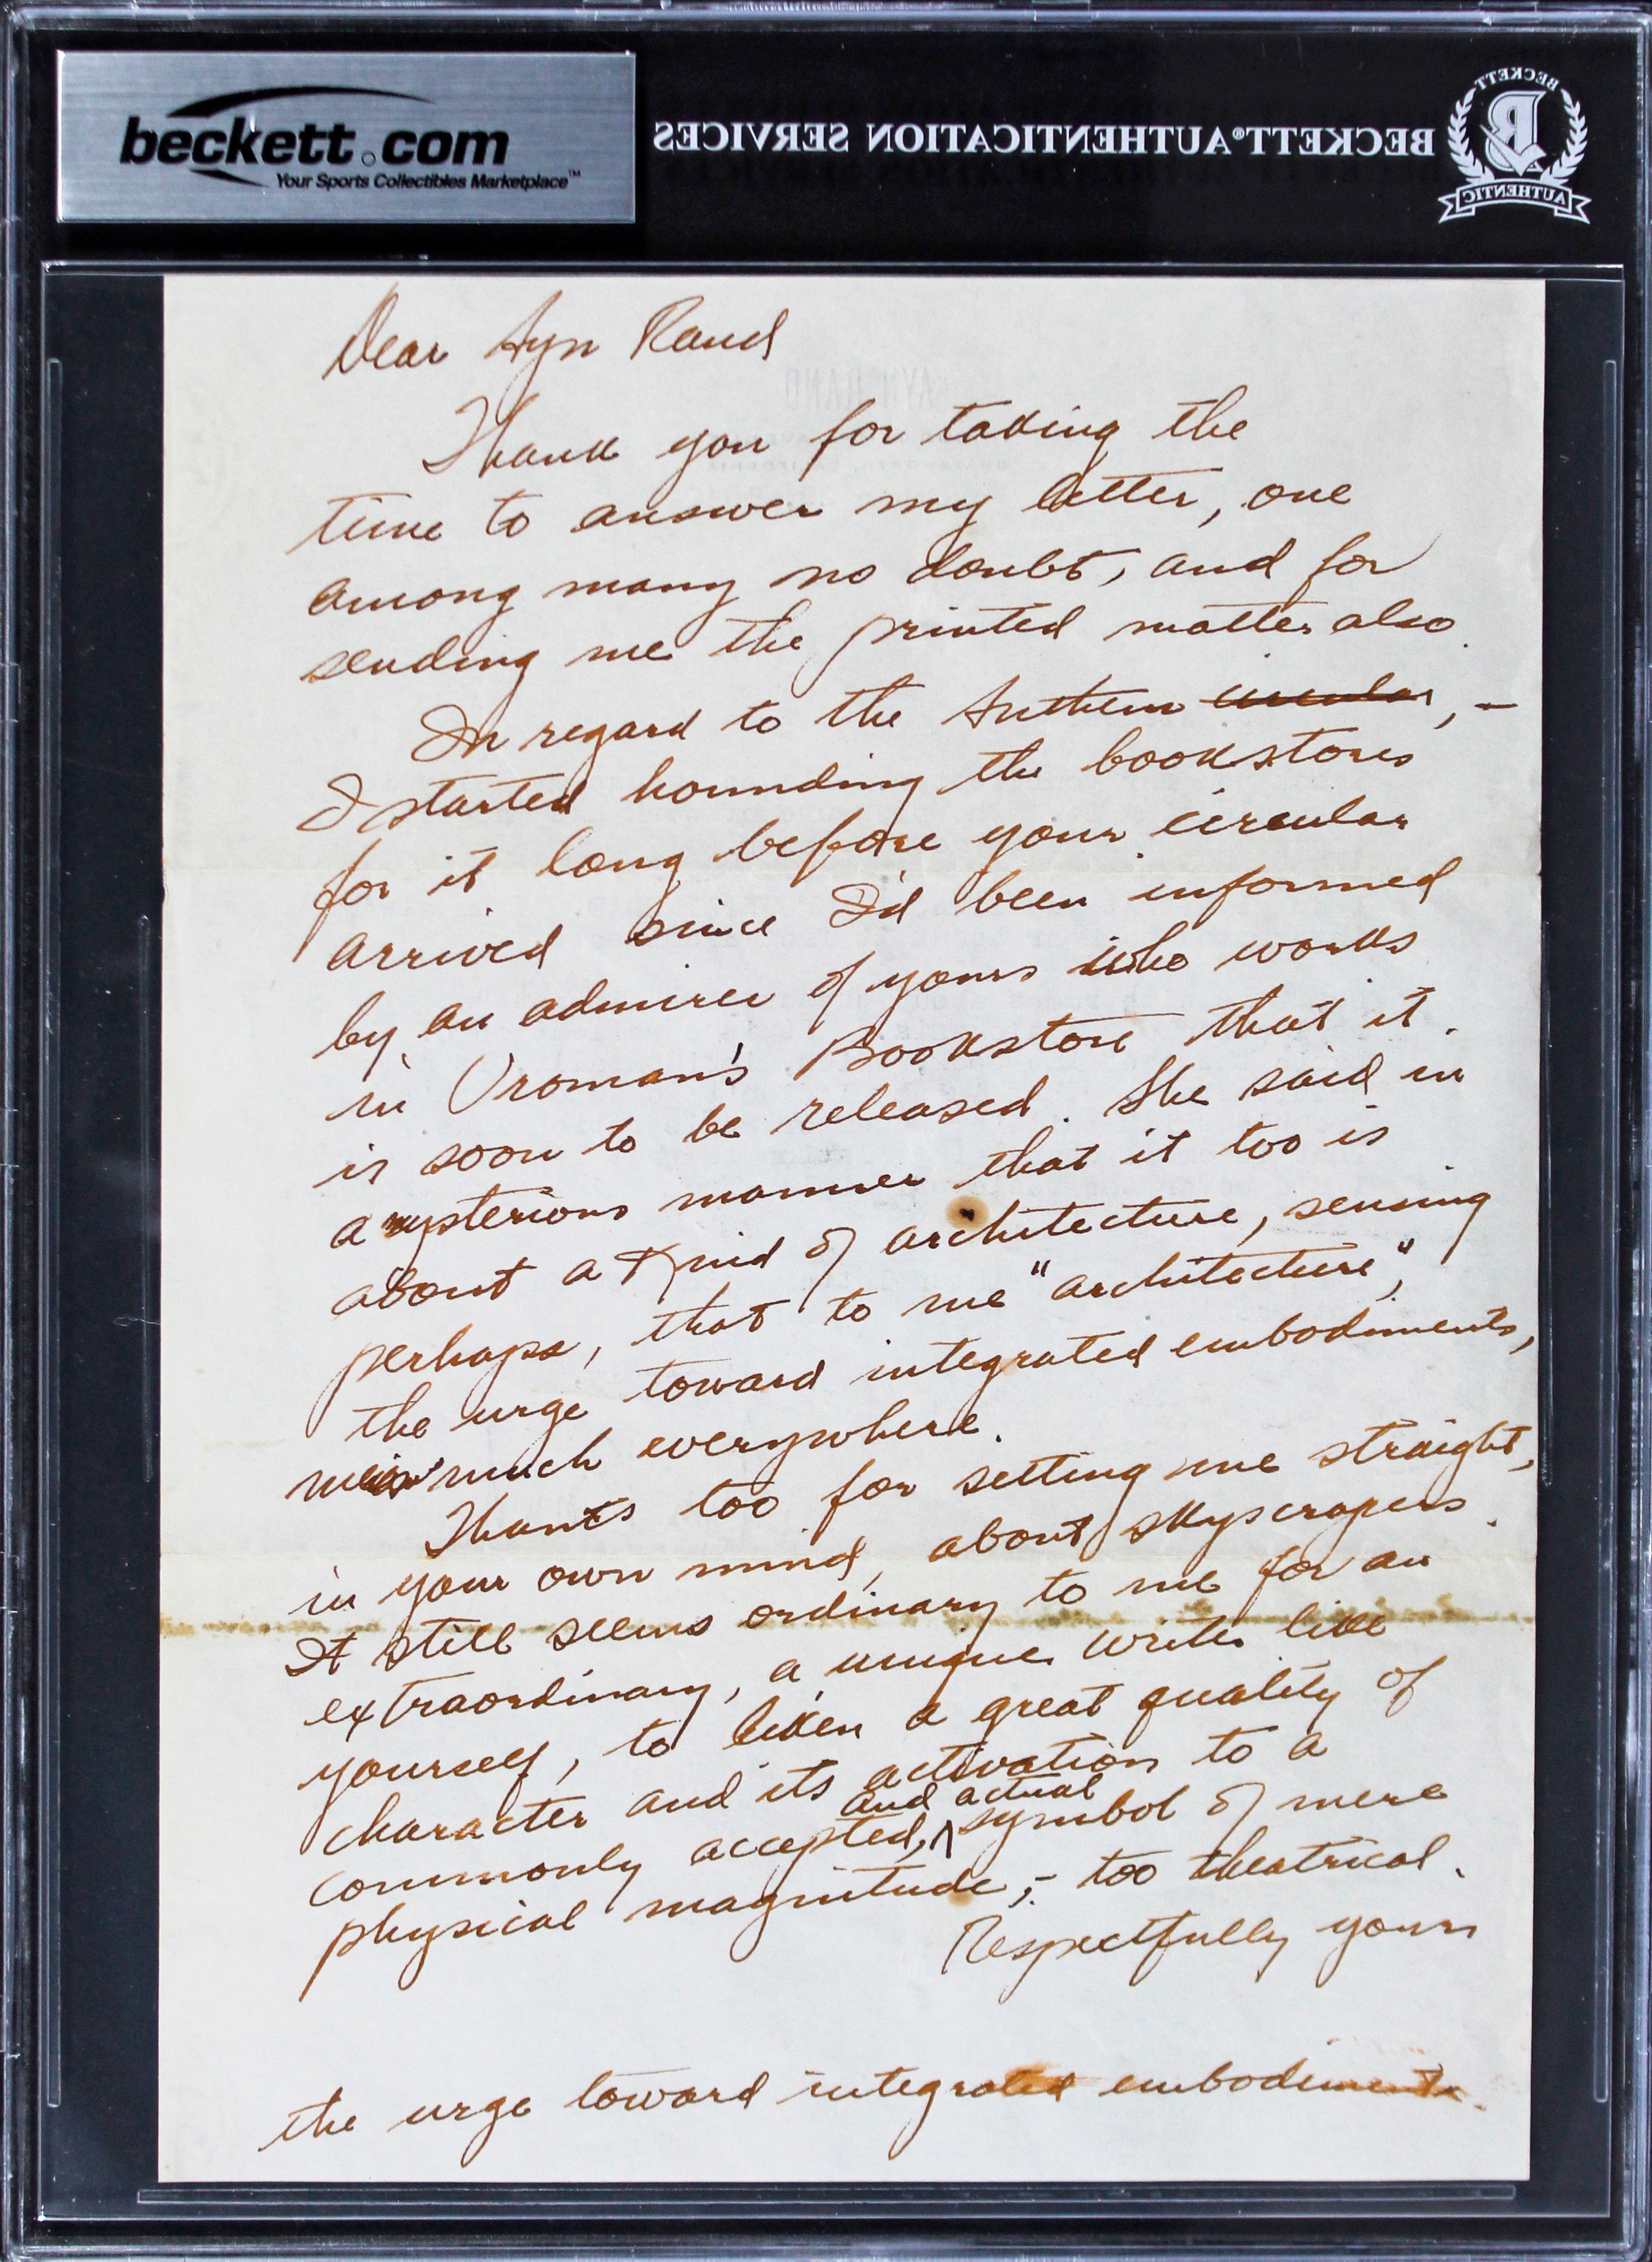 beckett.com
Your Sports Collectibles Marketplace™
BECKETT AUTHENTICATION SERVICES
BECKETT
B
AUTHENTIC
AYN RAND
Dear Ayn Rand
Thank you for taking the
time to answer my letter, one
among many no doubt, and for
sending me the printed matter also.
In regard to the Anthem circular, -
I started hounding the bookstores
for it long before your circular
arrived since I'd been informed
by an admirer of yours who works
in Vroman's Bookstore that it
is soon to be released. She said in
a mysterious manner that it too is
about a kind of architecture, sensing
perhaps, that to me "architecture",
the urge toward integrated embodiments,
much everywhere.
Thanks too for setting me straight,
in your own mind, about skyscrapers.
It still seems ordinary to me for an
extraordinary, a unique writer like
yourself, to liken a great quality of
character and its activation to a
commonly accepted, and actual symbol of mere
physical magnitude, - too theatrical.
Respectfully yours
the urge toward integrated embodiments.